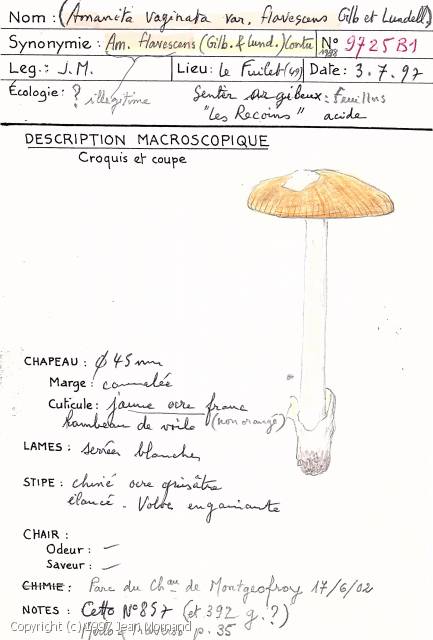 Nom : (Amanita vaginata var. flavescens Gilb et Lundell)
Synonymie : Am. flavescens (Gilb. & Lund.) Contu N° 9725B1
Leg. : J.M. Lieu : Le Fuilet (49) Date : 3.7.97
Écologie : ? illégitime Sentier argileux : Feuillus
"Les Recoins" acide
DESCRIPTION MACROSCOPIQUE
Croquis et coupe
CHAPEAU : ϕ 45 mm
Marge : cannelée
Cuticule : jaune ocre franc
lambeau de voile (non orangé)
LAMES : serrées blanches
STIPE : chiné ocre grisâtre
élancé - Volve engainante
CHAIR :
Odeur : —
Saveur : —
CHIMIE : Parc du Chau de Montgeofroy 17/6/02
NOTES : Cetto N° 857 (et 392 g. ?)
p. 35
Copyright (c) 1997 Jean Mornand